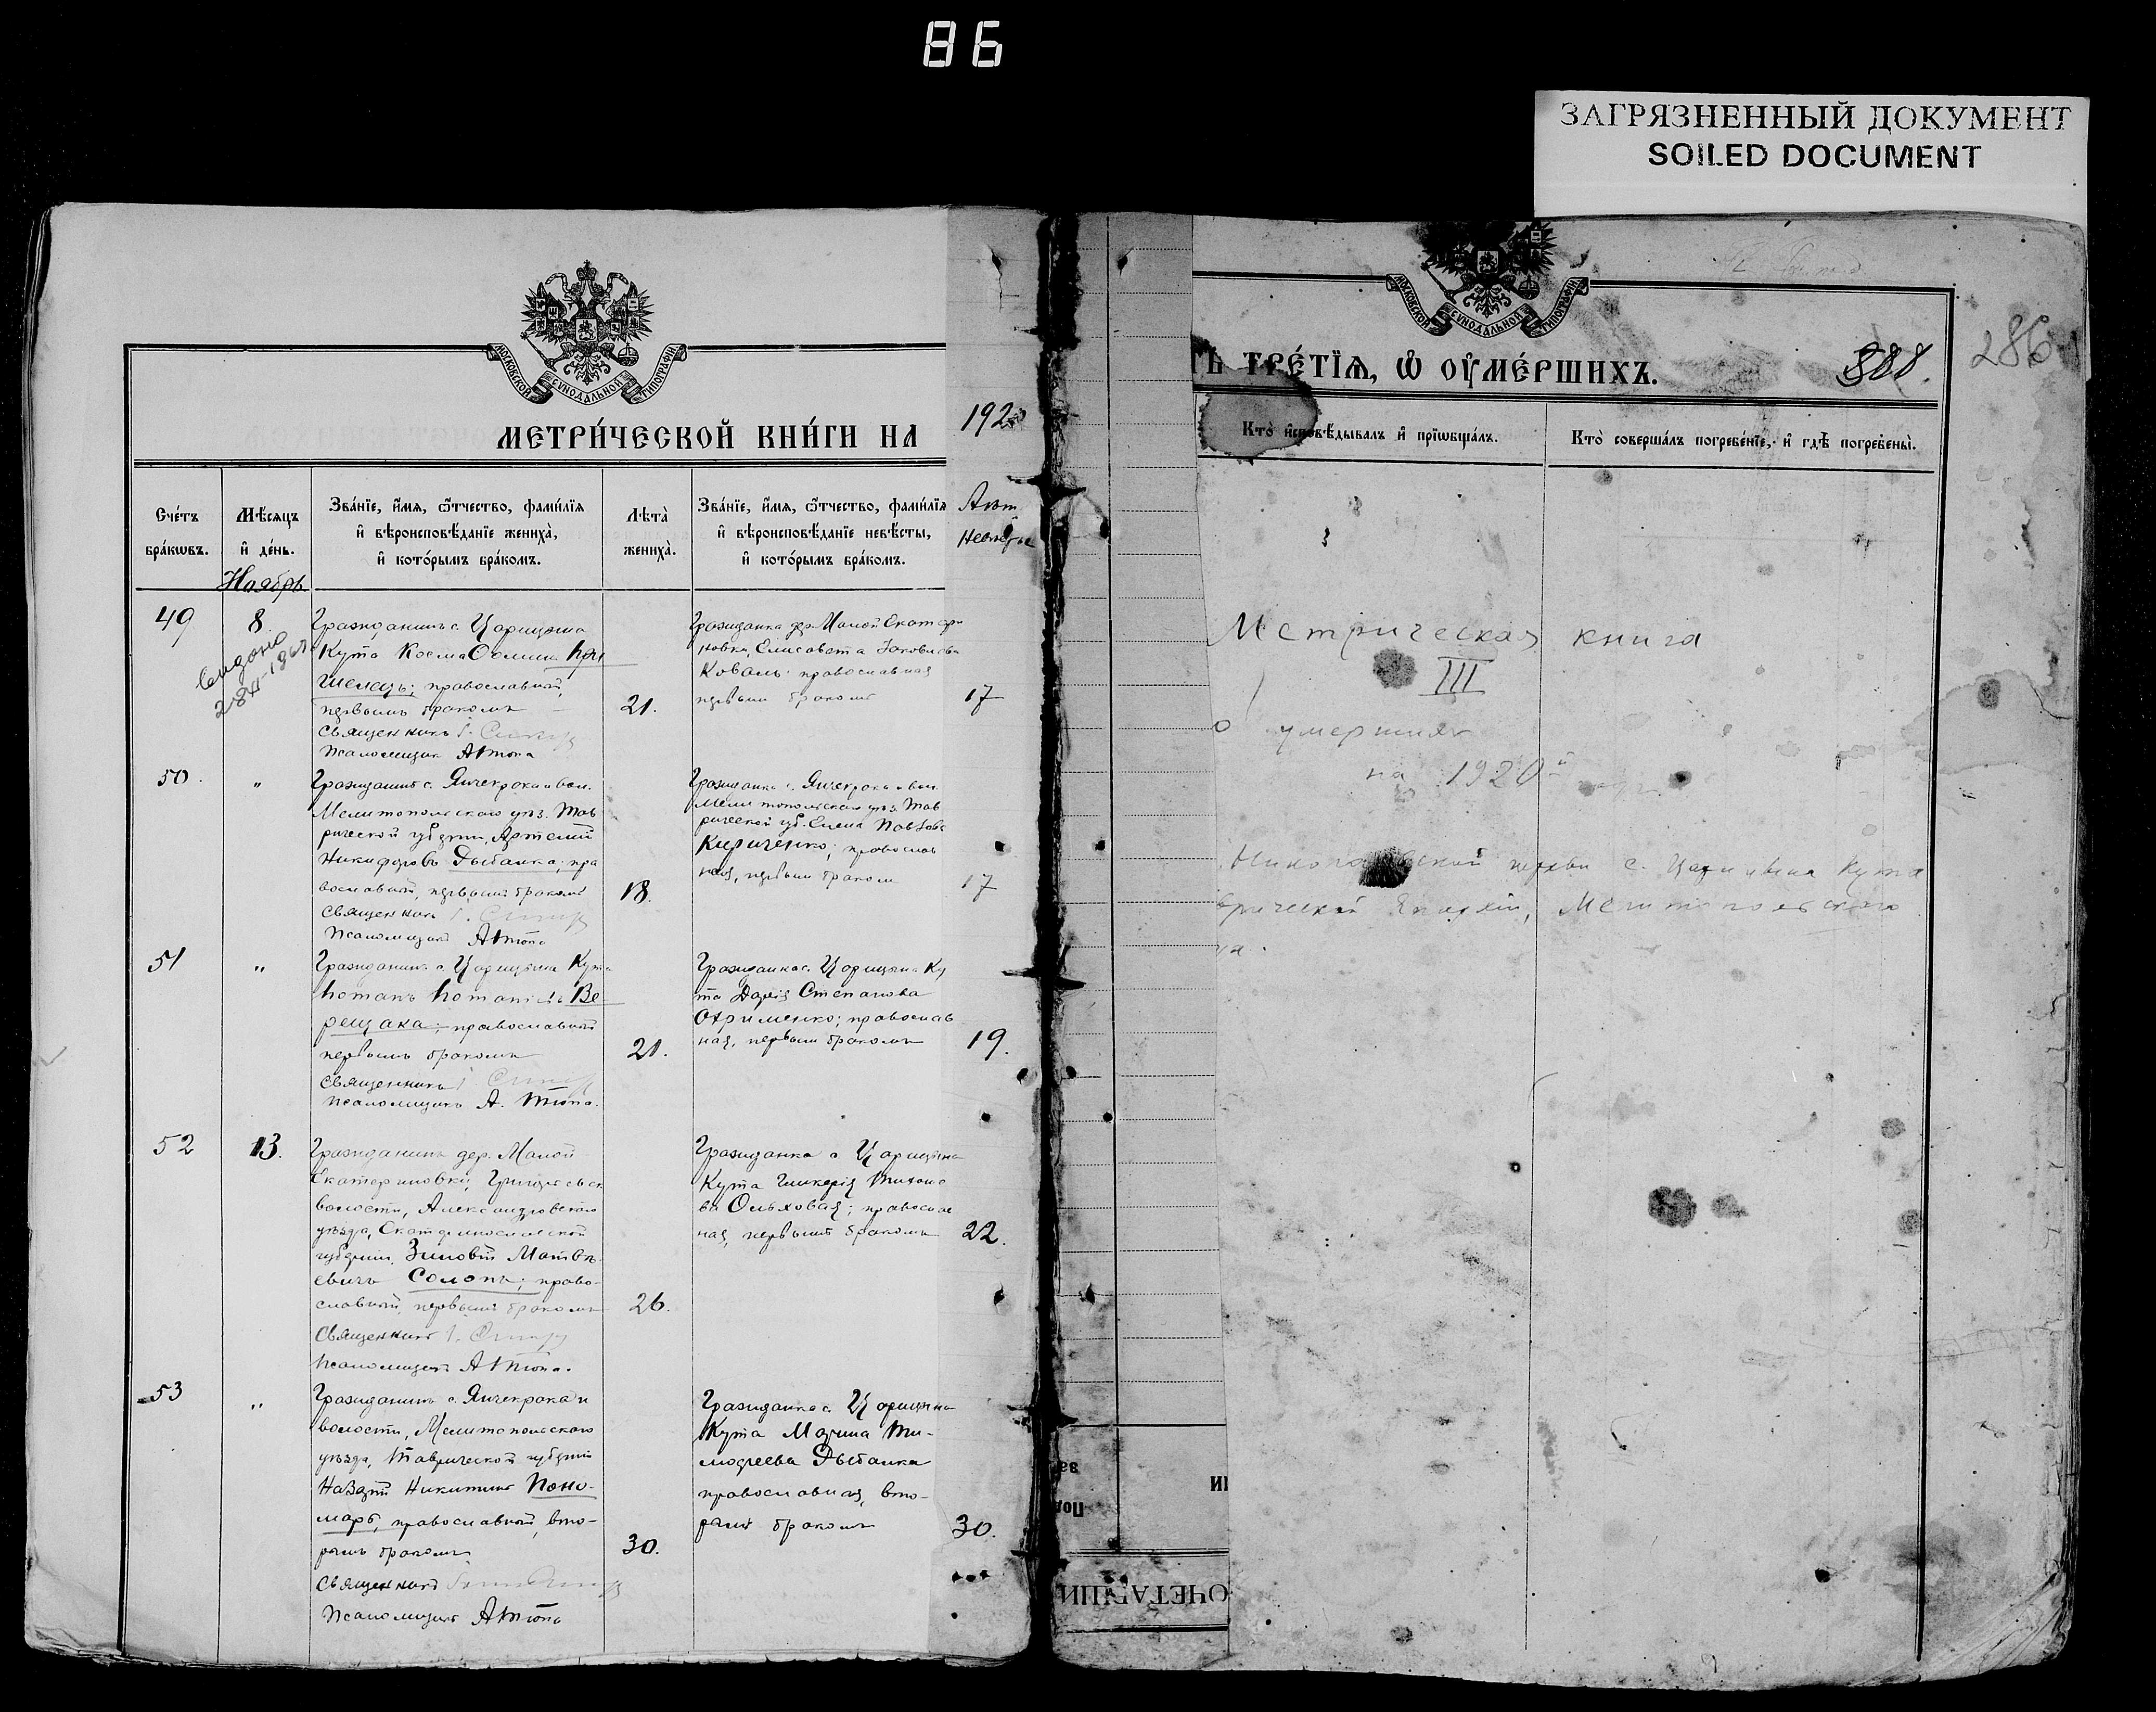 86
ЗАГРЯЗНЕННЫЙ ДОКУМЕНТ
SOILED DOCUMENT
МОСКОВСКОЙ СѴНОДАЛЬНОЙ ТИПОГРАФІИ
МЕТРИ́ЧЕСКОЙ КНИ́ГИ НА
192
Сче́тъ бра́кѡвъ.
Мѣ́сяцъ и҆ де́нь.
Зва́нїе, и҆́мѧ, ѻ҆́тчество, фами́лїѧ
и҆ вѣроисповѣ́данїе жениха̀,
и҆ кото́рымъ бра́комъ.
Лѣта̀ жениха̀.
Зва́нїе, и҆́мѧ, ѻ҆́тчество, фами́лїѧ
и҆ вѣроисповѣ́данїе невѣ́сты,
и҆ кото́рымъ бра́комъ.
Лѣт
невѣсты
Ноябрь
49
8.
Гражданинъ с. Царицына
Кута Косма Ѳоминъ При
шелецъ; православный,
первымъ бракомъ
21.
Священникъ І.
Псаломщик А Тюпа
Гражданка дер. Малой Екатери
новки, Елисавета Іаковлева
Коваль православная
первымъ бракомъ
17
50.
"
Гражданинъ с. Янчекрака и вол.
Мелитопольскаго уѣз. Тав
рической губерніи, Артемій
Никифоровъ Рыбалка; пра
вославный, первымъ бракомъ
18.
Священникъ І.
Псаломщикъ А Тюпа
Гражданка с. Янчекрака и вол.
Мелитопольскаго уѣз. Тав
рической губ. Елена Павлова
Кириченко; православ
ная, первым браком
17
51
"
Гражданинъ с. Царицына Кута
Потапъ Потаповъ Ве
рещака; православный
первымъ бракомъ
21.
Священникъ І.
Псаломщикъ А. Тюпа.
Гражданка с. Царицына Ку
та Дарія Степанова
Охрименко; православ
ная, первым бракомъ
19.
52
13.
Гражданинъ дер. Малой
Екатериновки,
волости, Александровскаго
уѣзда, Екатеринославской
губерніи, Зиновій Матвѣ
евичъ Солопъ; право-
славный, первымъ бракомъ
26.
Священникъ І.
Псаломщикъ А Тюпа.
Гражданка с Царицына
Кута Гликерія Тихоно
ва Ольховая; православ
ная, первымъ бракомъ
22.
53
"
Гражданинъ с. Янчекрака и
волости, Мелитопольскаго
уѣзда, Таврической губерніи
Назарій Никитинъ Поно-
марь, православный, вто-
рымъ бракомъ
30.
Священникъ
Псаломщикъ А Тюпа
Гражданка с. Царицына
Кута Марина Ти-
моѳеева Рыбалка
православная, вто-
рымъ бракомъ
30.
МОСКОВСКОЙ СѴНОДАЛЬНОЙ ТИПОГРАФІИ
ТЬ ТРЕ́ТЇѦ, Ѽ ОУ҆МЕ́РШИХЪ.
388.
286
Кто̀ и҆сповѣ́дывалъ и҆ прїѡбща́лъ.
Кто̀ соверша́лъ погребе́нїе, и҆ гдѣ̀ погребены̀.
Метрическая книга
III
о умершихъ
на 1920й годъ
Николаевской церкви с. Царицына Кута
врической Епархіи, Мелитопольскаго
да.